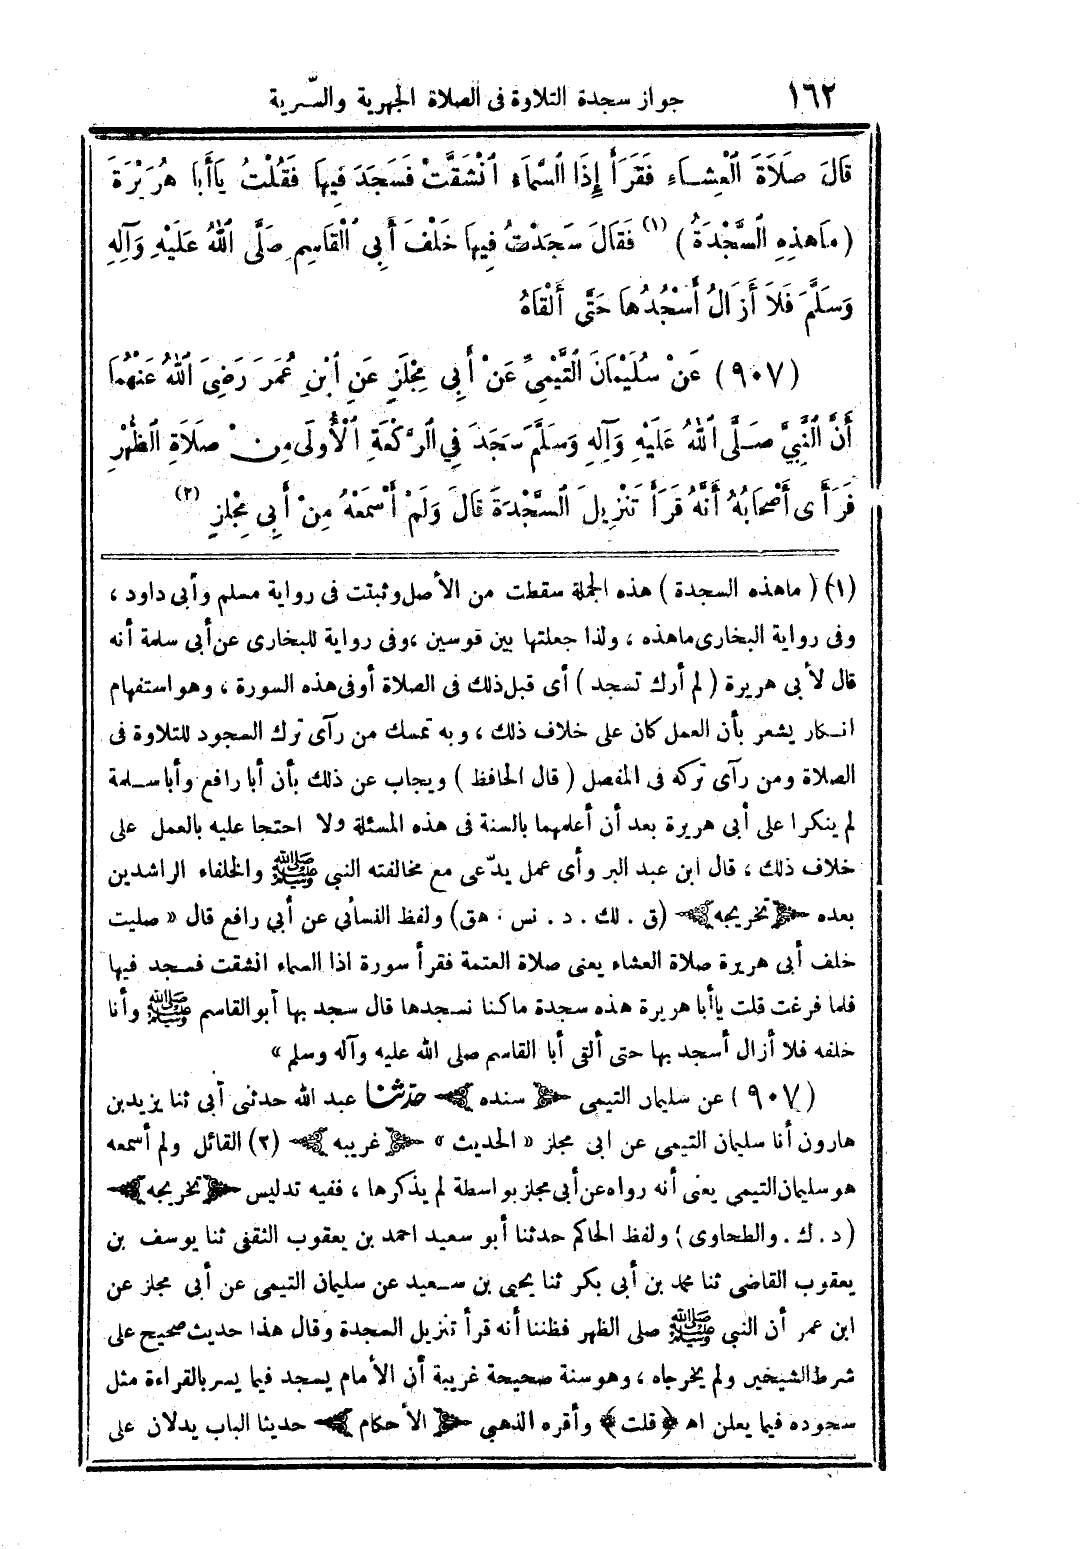 ١٦٢ جواز سجدة التلاوة فى الصلاة الجهرية والسّرية
قَالَ صَلَاةَ الْعِشَاءِ فَقَرَأَ إِذَا السَّمَاءُ انْشَقَّتْ فَسَجَدَ فِيهَا فَقُلْتُ يَاأَبَا هُرَيْرَةَ
(مَاهَذِهِ السَّجْدَةُ) (١) فَقَالَ سَجَدْتُ فِيهَا خَلْفَ أَبِى الْقَاسِمِ صَلَّى اللهُ عَلَيْهِ وَآلِهِ
وَسَلَّمَ فَلَا أَزَالُ أَسْجُدُهَا حَتَّى أَلْقَاهُ
(٩٠٧) عَنْ سُلَيْمَانَ التَّيْمِىِّ عَنْ أَبِى مِجْلَزٍ عَنِ ابْنِ عُمَرَ رَضِىَ اللهُ عَنْهُمَا
أَنَّ النَّبِيَّ صَلَّى اللهُ عَلَيْهِ وَآلِهِ وَسَلَّمَ سَجَدَ فِي الرَّكْعَةِ الْأُولَى مِنْ صَلَاةِ الظُّهْرِ
فَرَأَى أَصْحَابُهُ أَنَّهُ قَرَأَ تَنْزِيلَ السَّجْدَةَ قَالَ وَلَمْ أَسْمَعْهُ مِنْ أَبِى مِجْلَزٍ (٢)
(١) (ماهذه السجدة) هذه الجملة سقطت من الأصل وثبتت فى رواية مسلم وأبى داود ،
وفى رواية البخارى ماهذه ، ولذا جعلتها بين قوسين ،وفى رواية للبخارى عن أبى سلمة أنه
قال لأبى هريرة (لم أرك تسجد) أى قبل ذلك فى الصلاة أوفى هذه السورة ، وهو استفهام
انكار يشعر بأن العمل كان على خلاف ذلك ، وبه تمسك من رآى ترك السجود للتلاوة فى
الصلاة ومن رآى تركه فى المفصل (قال الحافظ) ويجاب عن ذلك بأن أبا رافع وأبا سلمة
لم ينكرا على أبى هريرة بعد أن أعلمهما بالسنة فى هذه المسئلة ولا احتجا عليه بالعمل على
خلاف ذلك ، قال ابن عبد البر وأى عمل يدّعى مع مخالفته النبى ﷺ والخلفاء الراشدين
بعده ﴿تخريجه﴾ (ق . لك . د . نس . هق) ولفظ النسائى عن أبى رافع قال « صليت
خلف أبى هريرة صلاة العشاء يعنى صلاة العتمة فقرأ سورة اذا السماء انشقت فسجد فيها
فلما فرغت قلت يأبا هريرة هذه سجدة ماكنا نسجدها قال سجد بها أبو القاسم ﷺ وأنا
خلفه فلا أزال أسجد بها حتى ألقى أبا القاسم صلى الله عليه وآله وسلم »
(٩٠٧) عن سليمان التيمى ﴿سنده﴾ حدثنا عبد الله حدثنى أبى ثنا يزيد بن
هارون أنا سليمان التيمى عن ابى مجلز « الحديث » ﴿غريبه﴾ (٢) القائل ولم أسمعه
هو سليمان التيمى يعنى أنه رواه عن أبى مجلز بواسطة لم يذكرها ، ففيه تدليس ﴿تخريجه﴾
(د . ك . والطحاوى) ولفظ الحاكم حدثنا أبو سعيد احمد بن يعقوب الثقفى ثنا يوسف بن
يعقوب القاضى ثنا محمد بن أبى بكر ثنا يحيى بن سعيد عن سليمان التيمى عن أبى مجلز عن
ابن عمر أن النبى ﷺ صلى الظهر فظننا أنه قرأ تنزيل السجدة وقال هذا حديث صحيح على
شرط الشيخين ولم يخرجاه ، وهو سنة صحيحة غريبة أن الأمام يسجد فيما يسر بالقراءة مثل
سجوده فيما يعلن اهـ ﴿قلت﴾ وأقره الذهبى ﴿الأحكام﴾ حديثا الباب يدلان على